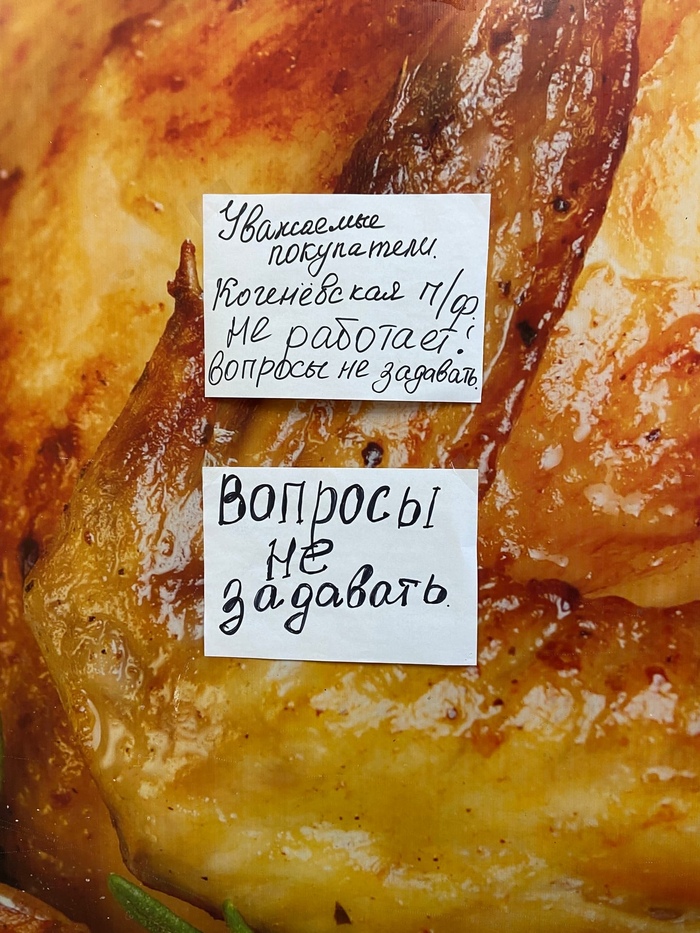 Уважаемые
покупатели.
Коченёвская п/ф.
не работает!
вопросы не задавать.
Вопросы
не
задавать.